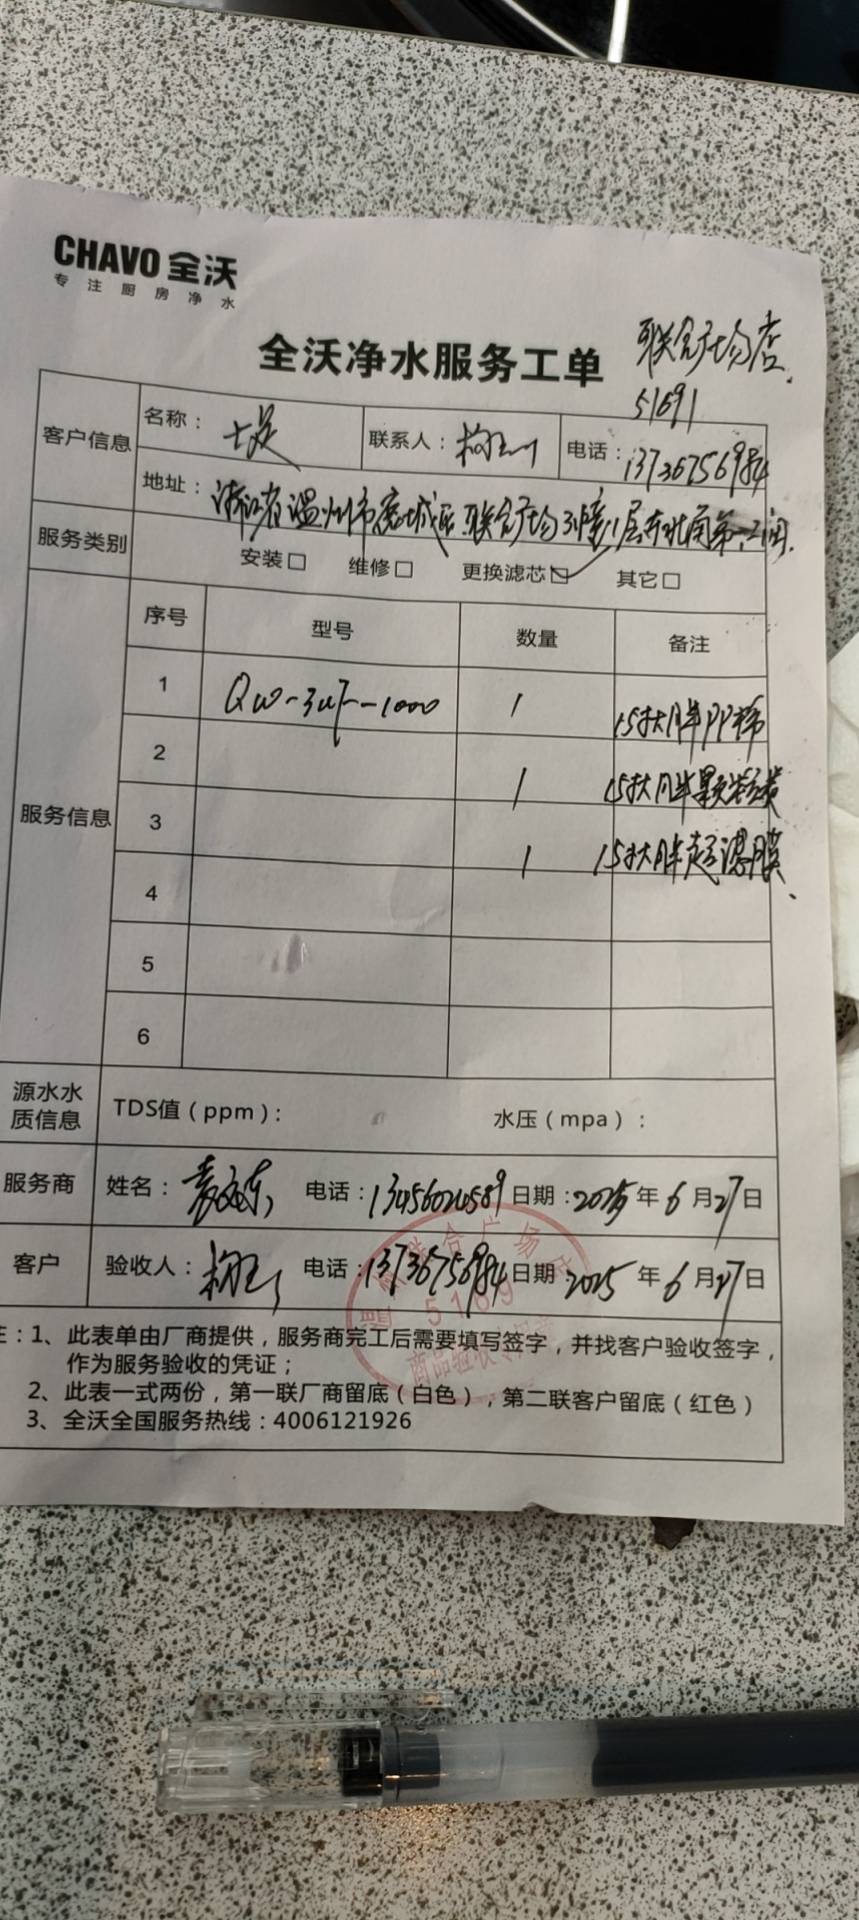 CHAVO 全沃
专注厨房净水
全沃净水服务工单
联合广场店.
51691
客户信息 名称： 联系人： 电话：13736756984
地址：浙江省温州市鹿城区联合广场3幢1层东北角第一、二间.
服务类别 安装□ 维修□ 更换滤芯☑ 其它□
服务信息 序号 型号 数量 备注
1 QW-3UF-1000 1 15寸大胖PP棉
2 1 15寸大胖颗粒炭
3 1 15寸大胖超滤膜.
4
5
6
源水水质信息 TDS值（ppm）： 水压（mpa）：
服务商 姓名： 电话：13456024589 日期：2025年6月27日
客户 验收人： 电话：13736756984 日期：2025年6月27日
联合广场店
5169
商品验收专用章
注：1、此表单由厂商提供，服务商完工后需要填写签字，并找客户验收签字，
作为服务验收的凭证；
2、此表一式两份，第一联厂商留底（白色），第二联客户留底（红色）
3、全沃全国服务热线：4006121926